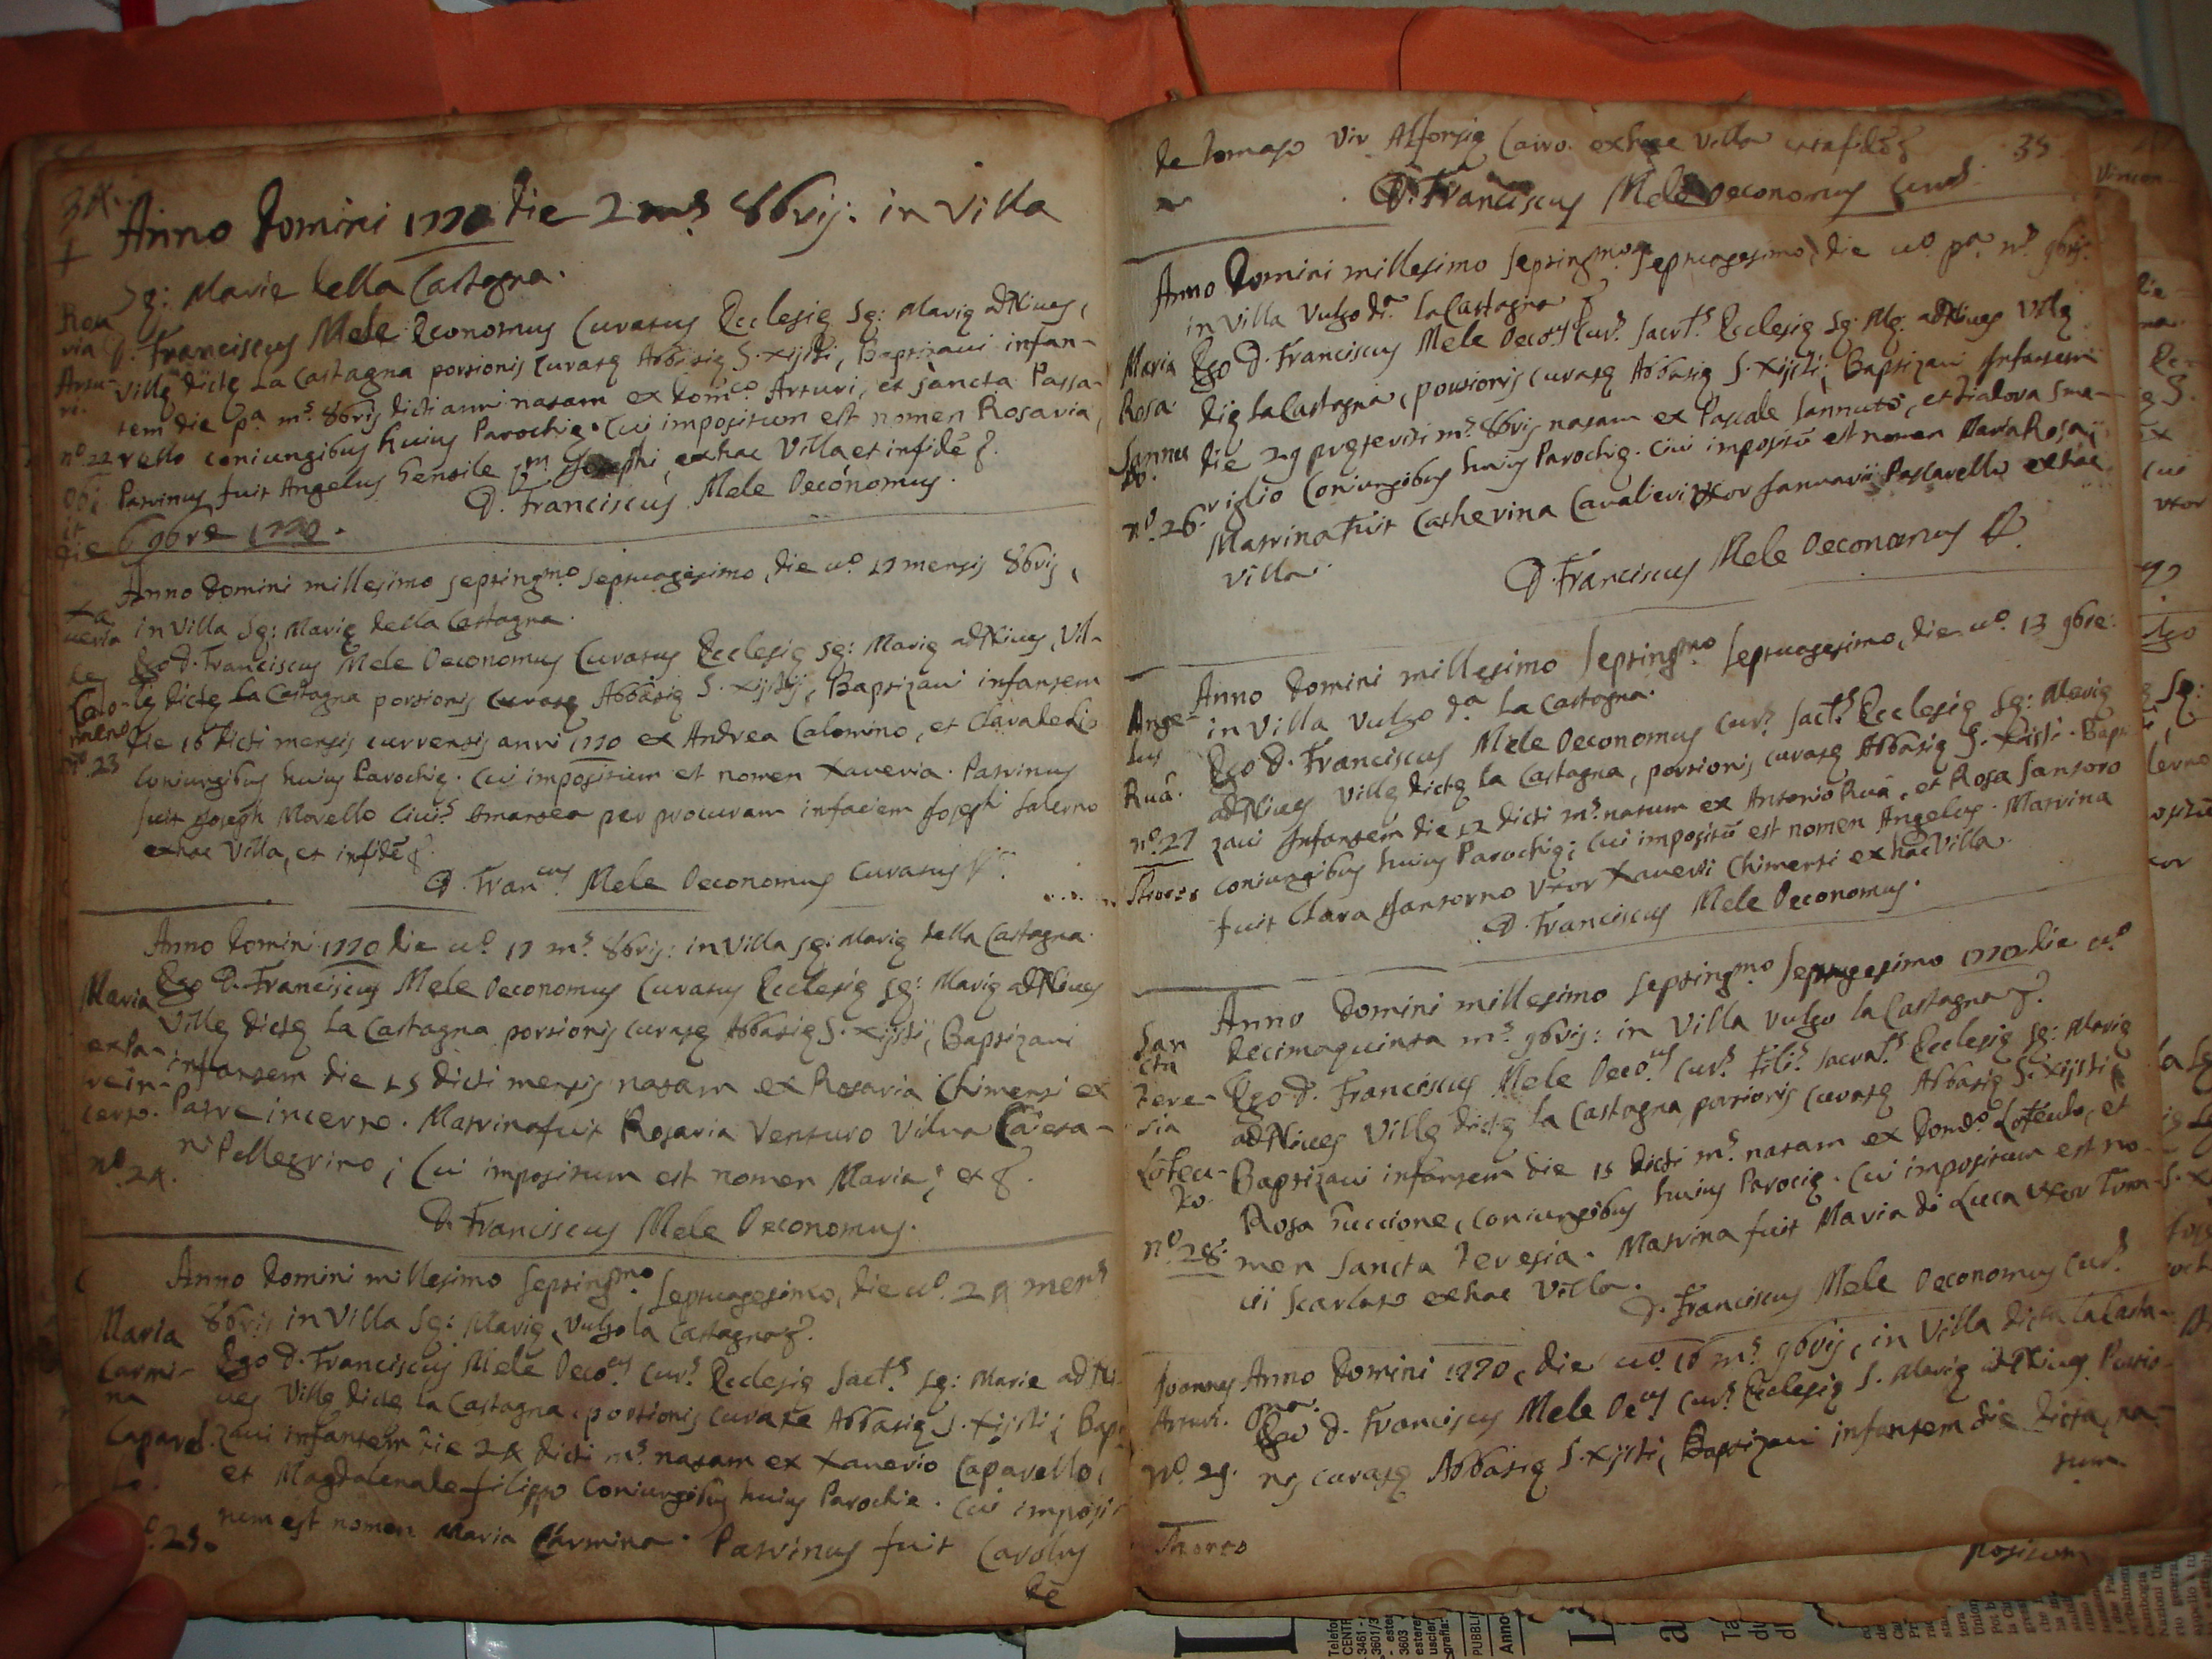 34.
Anno Domini 1770 die 2 ms 8bris: in Villa
Sę: Marie della Castagna.
Rosa
ria
Artu-
ri.
no. 22
Obi
it
D. Franciscus Mele Economus Curatus Ecclesię Sę: Marię ad Nives,
Villę dictę La Castagna portionis Curatę Abbatię S. Xijsti, Baptizavi infan-
tem die pa. ms. 8bris dicti anni natam ex Domco Arturi, et Sancta Passa-
rello coniungibus huius Parochię. Cui impositum est nomen Rosaria,
Patrinus fuit Angelus Gentile qm Josephi, ex hac Villa et in fidē &.
D. Franciscus Mele Oeconomus.
die 6 9bre 1770.
Anno Domini millesimo septingmo septuagesimo, die uo. 17 mensis 8bris,
in Villa Sę: Marię della Castagna.
Xa
veria
de
Colo-
mino
no. 23
Ego D. Franciscus Mele Oeconomus Curatus Ecclesię Sę: Marię ad Nives, Vil-
lę dictę La Castagna portionis curatę Abbatię S. Xijsti, Baptizavi infantem
die 16 dicti mensis currentis anni 1770 ex Andrea Colomino, et Clara
coniungibus huius Parochię. Cui impositum est nomen Xaveria. Patrinus
fuit Joseph Morello Civis Amantea per procuram in faciem Josephi Salerno
ex hac Villa, et in fidē &.
D. Francus Mele Oeconomus Curatus
Anno Domini 1770 die uo. 17 ms. 8bris: in Villa Sę: Marię della Castagna.
Maria
ex Pa-
tre in-
certo.
no. 24.
Ego D. Franciscus Mele Oeconomus Curatus Ecclesię Sę: Marię ad Nives
Villę dictę La Castagna portionis curatę Abbatię S. Xijsti, Baptizavi
infantem die 15 dicti mensis natam ex Rosaria Chimensi ex
Patre incerto. Matrina fuit Rosaria Venturo Vidua Caieta-
ni Pellegrino; Cui impositum est nomen Maria; et &.
D. Franciscus Mele Oeconomus.
Anno Domini millesimo septingmo. septuagesimo, die uo. 24 mens
8bris in Villa Sę: Marię, vulgo la Castagna &.
Maria
Carmi-
na
Caparel-
lo.
o. 25.
Ego D. Franciscus Mele Oecous Curs. Ecclesię Sacts. Sę: Marie ad Ni-
ves Villę dictę La Castagna, portionis curate Abbatię S. Xijsti; Bapti
zavi infantem die 24 dicti ms. natam ex Xaverio Caparello,
et Magdalena de Filippo Coniungibus huius Parochie. Cui imposi
tum est nomen Maria Carmina. Patrinus fuit Carolus
de
de Tomaso Vir Alfonsię Cairo. ex hac Villa et in fidē &
35
D. Franciscus Mele Oeconomus Curs.
Anno Domini millesimo septingmo. septuagesimo, die uo. pa. ms. 9bris.
in Villa Vulgo da. La Castagna &
Maria
Rosa
Iannu
zo.
no. 26.
Ego D. Franciscus Mele Oecous Curs. Sacrts. Ecclesię Sę: Mę. ad Nives Villę
dię La Castagna, portionis curatę Abbatię S. Xijsti; Baptizavi Infantem
die 29 pręteriti ms. 8bris natam ex Pascale Iannuzo, et Diadora Sme-
riglio Coniungibus huius Parochię. Cui impositū est nomen Maria Rosa;
Matrina fuit Catherina Cavalieri uxor Januarii Pascarello ex hac
Villa.
D. Franciscus Mele Oeconomus
Anno Domini millesimo septingmo septuagesimo, die uo. 13 9bre:
in Villa Vulgo da La Castagna.
Ange-
lus
Ruā.
no. 27
Morto
Ego D. Franciscus Mele Oeconomus Curs. Sacts. Ecclesię Sę: Marię
ad Nives Villę dictę la Castagna, portionis curatę Abbatię S. Xijsti. Bapti
zavi Infantem die 12 dicti ms. natum ex Antonio Ruā, et Rosa Santoro
coniungibus huius Parochię; Cui impositū est nomen Angelus. Matrina
fuit Clara Santorno uxor Xaverii Chimensi ex hac Villa.
D. Franciscus Mele Oeconomus.
Anno Domini millesimo septingmo septuagesimo 1770 die uo
decimaquinta ms. 9bris: in Villa vulgo la Castagna &.
San
cta
Tere-
sia
Loteu-
zo.
no. 28.
Ego D. Franciscus Mele Oecous Curs. Sacrats. Ecclesię Sę: Marię
ad Nives Villę dictę la Castagna, portionis curatę Abbatię S. Xijsti;
Baptizavi infantem die 15 dicti ms. natam ex Domco et
Rosa Guccione, coniungibus huius Parocię. Cui impositum est no-
men Sancta Teresia. Matrina fuit Maria di Luca uxor Tom-
Scarlato ex hac Villa.
D. Franciscus Mele Oeconomus Curs.
Joannes
Arturi.
no. 29.
Morto
Anno Domini 1770, die uo. 16 ms. 9bris, in Villa dicta la Casta-
gna.
Ego D. Franciscus Mele Oecus Curs Ecclesię S. Marię ad Nives Portio-
nis curatę Abbatię S. Xijsti, Baptizavi infantem die dicta, na-
tum
positum